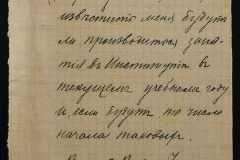 извѣстить меня будутъ
ли производиться заня-
тія въ Институтѣ въ
текущемъ учебномъ году
и если будутъ то число
начала таковыхъ.